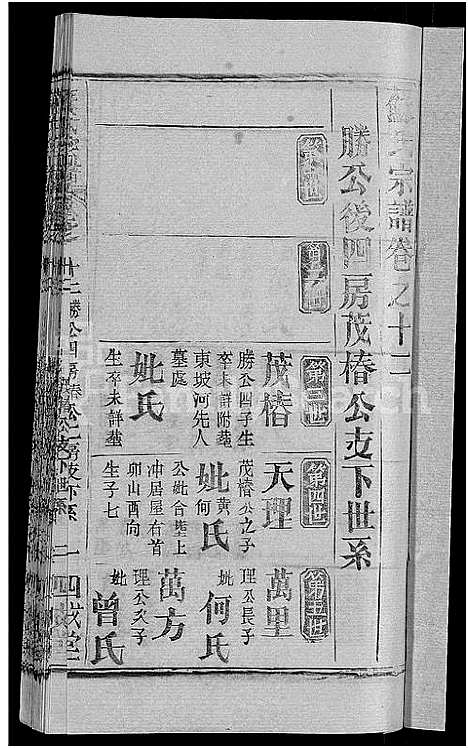 氏宗譜卷之十二
勝公後四房茂椿公支下世系
第一世
第二世
第三世
茂椿
勝公四子生
卒未詳附塟
東坡河先人
墓處
妣氏
生卒未詳塟
第四世
天理
茂椿公之子
妣黃何氏
公妣合塟上
冲居屋右首
卯山酉向
生子七
第五世
萬里
理公長子
妣何氏
萬方
理公次子
妣曾氏